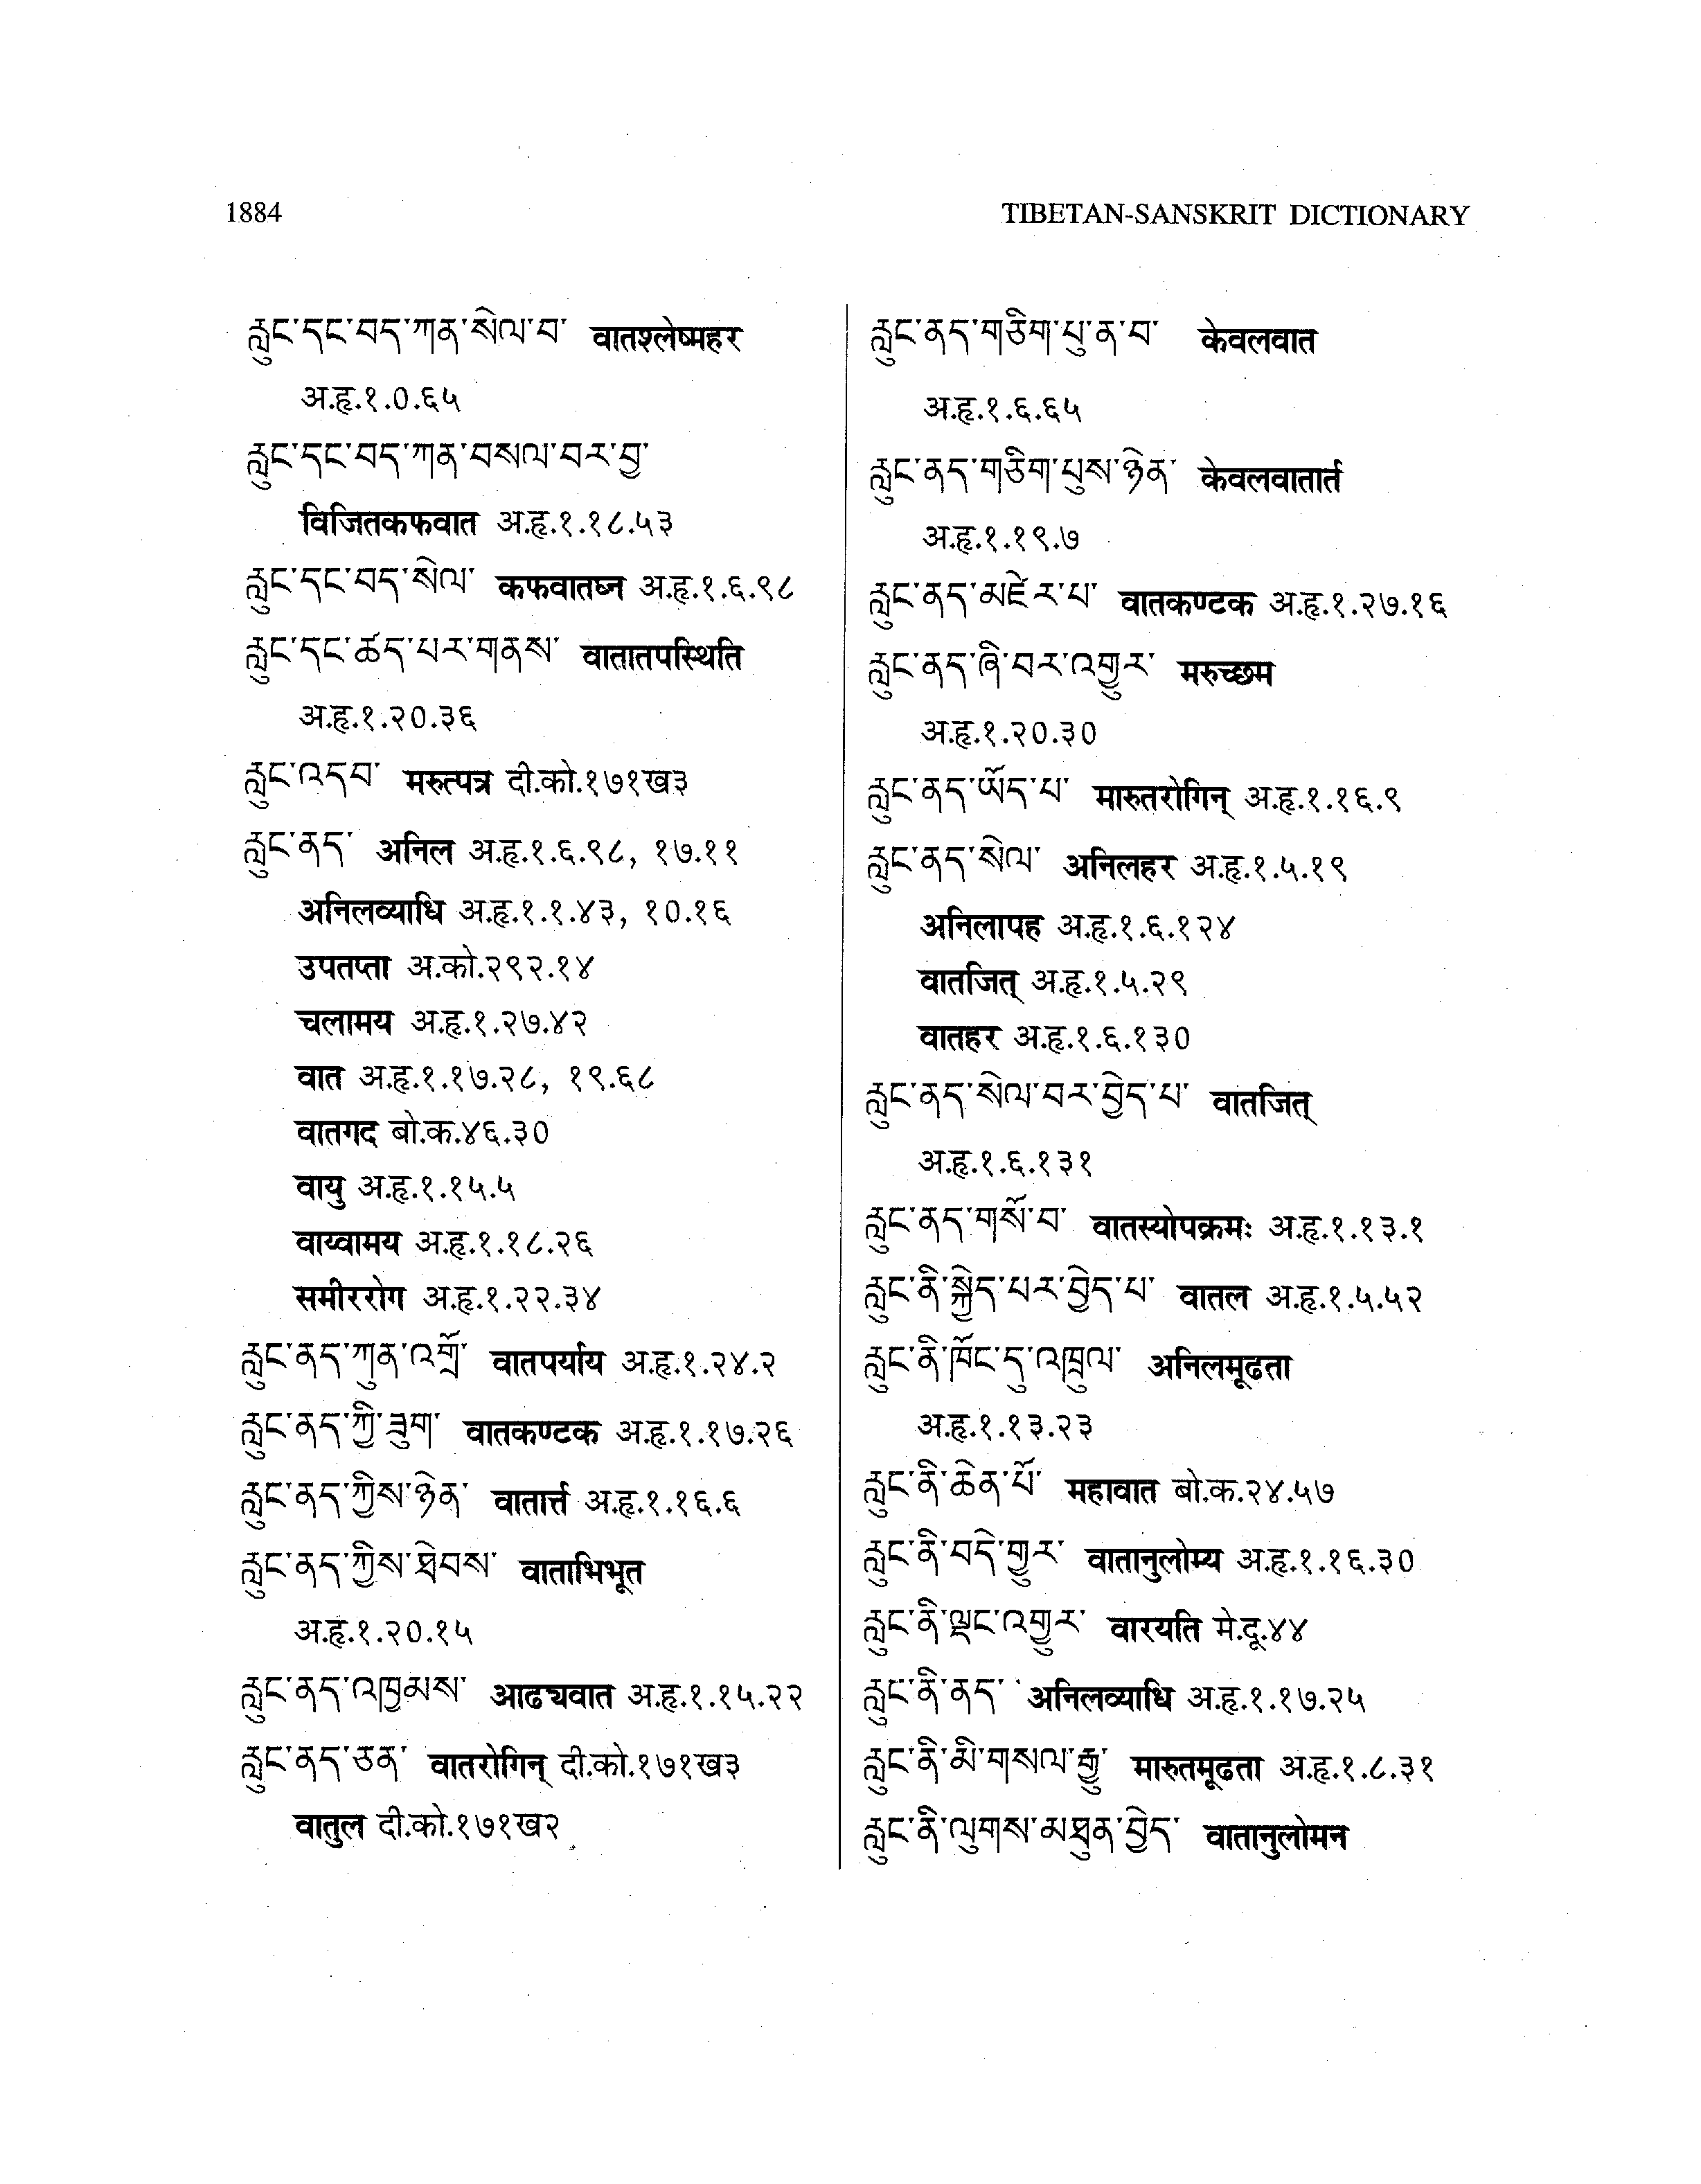 1884
TIBETAN-SANSKRIT DICTIONARY
རླུང་དང་བད་ཀན་སེལ་བ་ वातश्लेष्महर
अ.हृ.१.०.६५
རླུང་དང་བད་ཀན་བསལ་བར་བྱ་
विजितकफवात अ.हृ.१.१८.५३
རླུང་དང་བད་སེལ་ कफवातघ्न अ.हृ.१.६.९८
རླུང་དང་ཚད་པར་གནས་ वातातपस्थिति
अ.हृ.१.२०.३६
རླུང་འདབ་ मरुत्पत्र दी.को.१७१ख३
རླུང་ནད་ अनिल अ.हृ.१.६.९८, १७.११
अनिलव्याधि अ.हृ.१.१.४३, १०.१६
उपतप्ता अ.को.२९२.१४
चलामय अ.हृ.१.२७.४२
वात अ.हृ.१.१७.२८, १९.६८
वातगद बो.क.४६.३०
वायु अ.हृ.१.१५.५
वाय्वामय अ.हृ.१.१८.२६
समीररोग अ.हृ.१.२२.३४
རླུང་ནད་ཀུན་འགྲོ་ वातपर्याय अ.हृ.१.२४.२
རླུང་ནད་ཀྱི་ཟུག་ वातकण्टक अ.हृ.१.१७.२६
རླུང་ནད་ཀྱིས་ཉེན་ वातार्त्त अ.हृ.१.१६.६
རླུང་ནད་ཀྱིས་ཐེབས་ वाताभिभूत
अ.हृ.१.२०.१५
རླུང་ནད་འཁྱམས་ आढ्यवात अ.हृ.१.१५.२२
རླུང་ནད་ཅན་ वातरोगिन् दी.को.१७१ख३
वातुल दी.को.१७१ख२
རླུང་ནད་གཅིག་པུ་ན་བ་ केवलवात
अ.हृ.१.६.६५
རླུང་ནད་གཅིག་པུས་ཉེན་ केवलवातार्त
अ.हृ.१.१९.७
རླུང་ནད་མཛེར་པ་ वातकण्टक अ.हृ.१.२७.१६
རླུང་ནད་ཞི་བར་འགྱུར་ मरुच्छम
अ.हृ.१.२०.३०
རླུང་ནད་ཡོད་པ་ मारुतरोगिन् अ.हृ.१.१६.९
རླུང་ནད་སེལ་ अनिलहर अ.हृ.१.५.१९
अनिलापह अ.हृ.१.६.१२४
वातजित् अ.हृ.१.५.२९
वातहर अ.हृ.१.६.१३०
རླུང་ནད་སེལ་བར་བྱེད་པ་ वातजित्
अ.हृ.१.६.१३१
རླུང་ནད་གསོ་བ་ वातस्योपक्रमः अ.हृ.१.१३.१
རླུང་ནི་སྐྱེད་པར་བྱེད་པ་ वातल अ.हृ.१.५.५२
རླུང་ནི་ཁོང་དུ་འཁྲུལ་ अनिलमूढता
अ.हृ.१.१३.२३
རླུང་ནི་ཆེན་པོ་ महावात बो.क.२४.५७
རླུང་ནི་བདེ་གྱུར་ वातानुलोम्य अ.हृ.१.१६.३०
རླུང་ནི་ལྡང་འགྱུར་ वारयति मे.दू.४४
རླུང་ནི་ནད་ अनिलव्याधि अ.हृ.१.१७.२५
རླུང་ནི་མི་གསལ་རྒྱུ་ मारुतमूढता अ.हृ.१.८.३१
རླུང་ནི་ལུགས་མཐུན་བྱེད་ वातानुलोमन